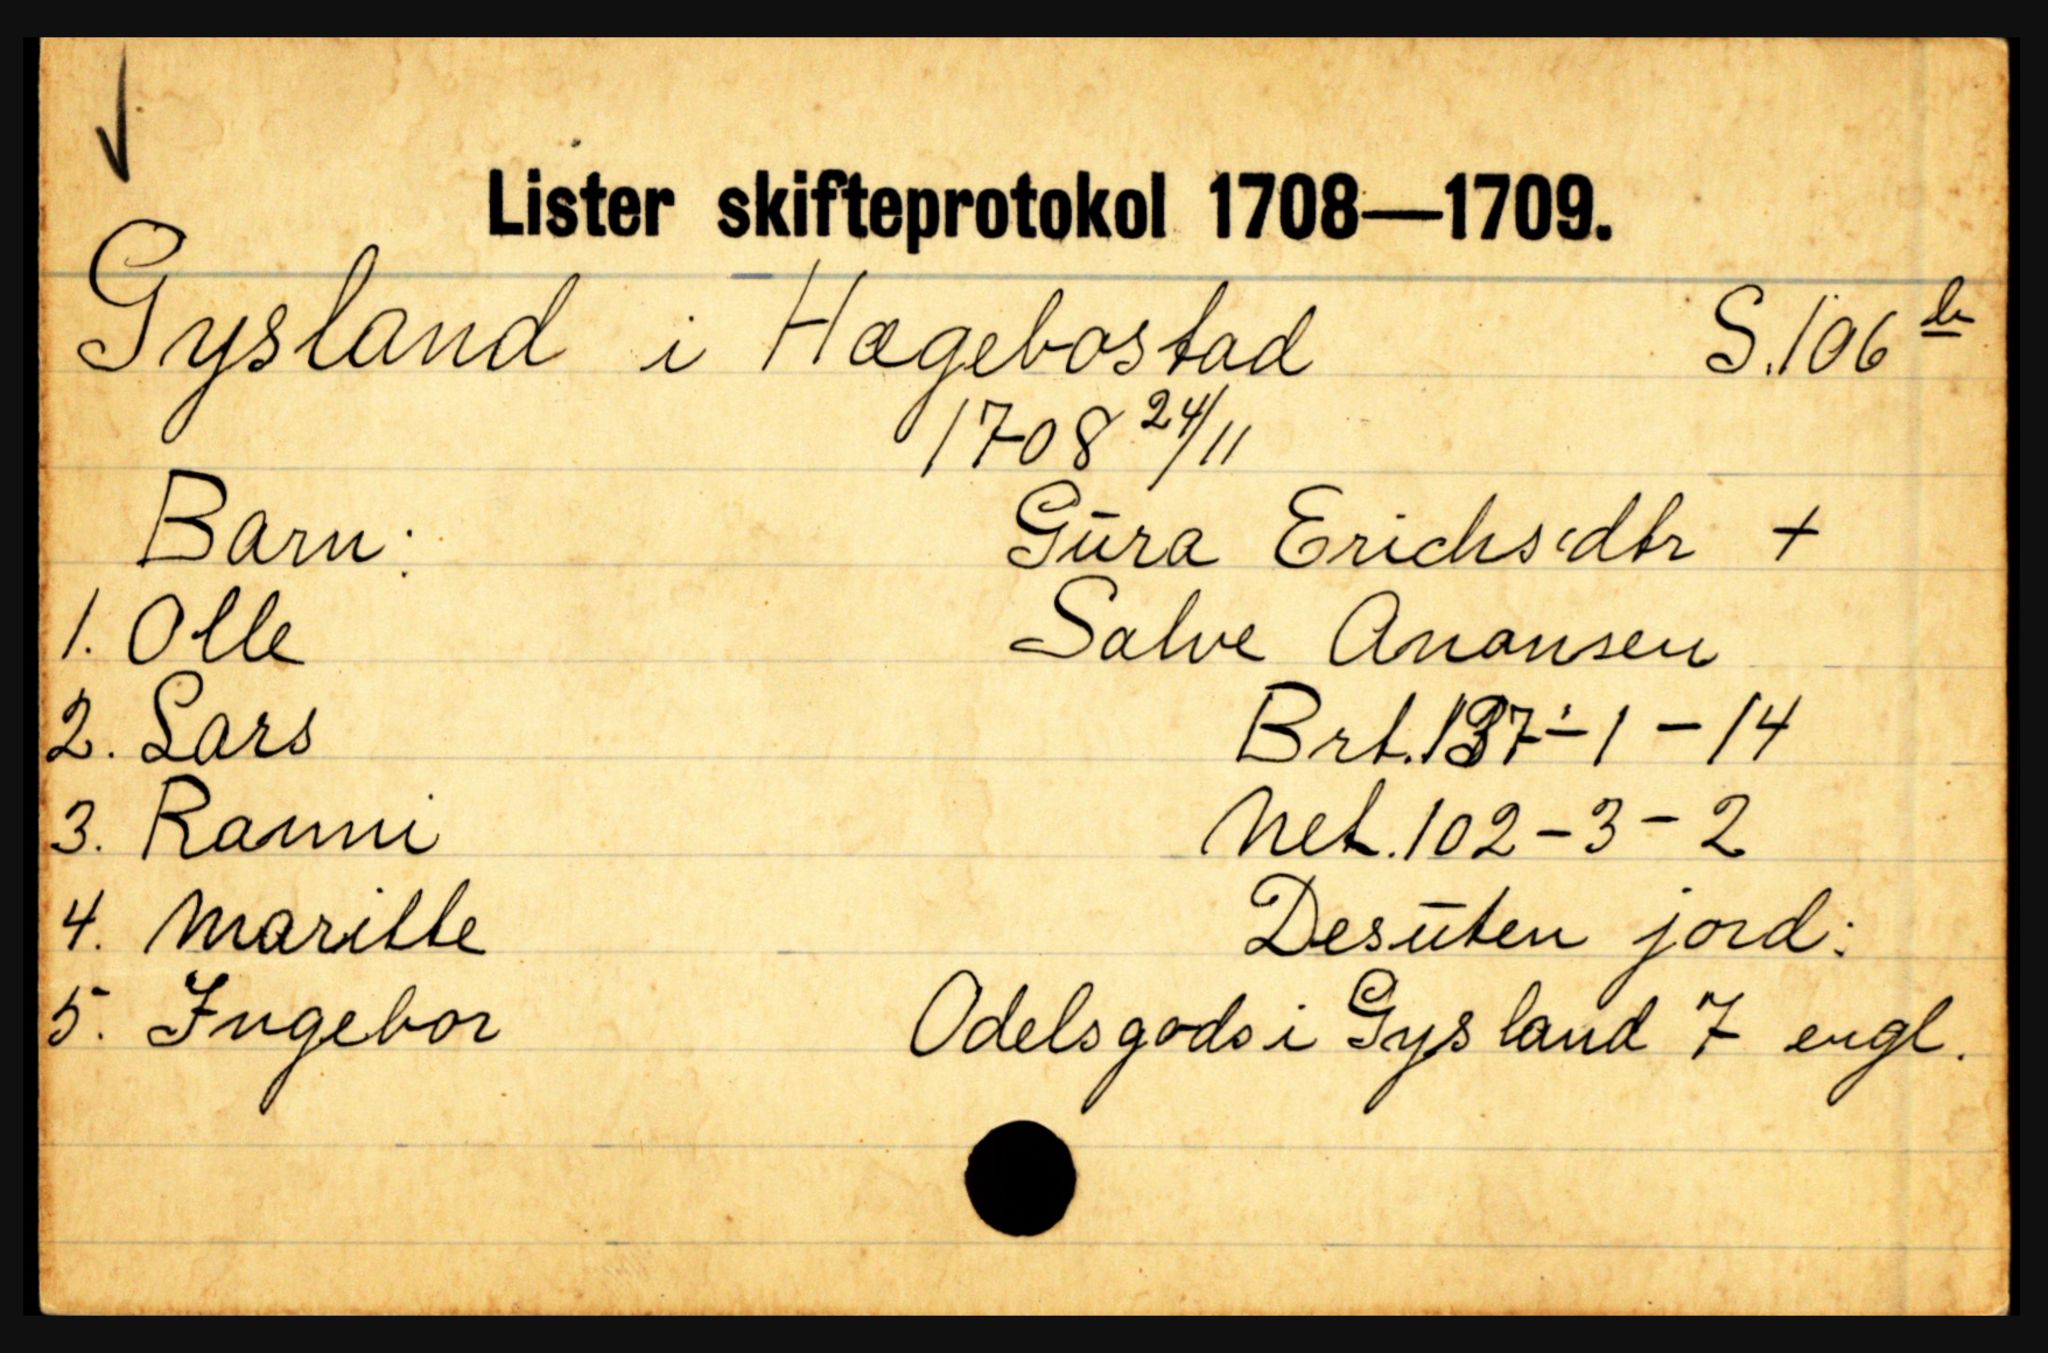 Lister skifteprotokol 1708—1709.
Gysland i Hægebostad S. 106 b
1708 24/11
Barn: Gūra Erichsdtr +
1. Olle Salve Anansen
2. Lars Brt. 137-1-14
3. Ranni Net. 102-3-2
4. Maritte Desūten jord:
5. Ingebor Odelsgods i Gysland 7 engl.